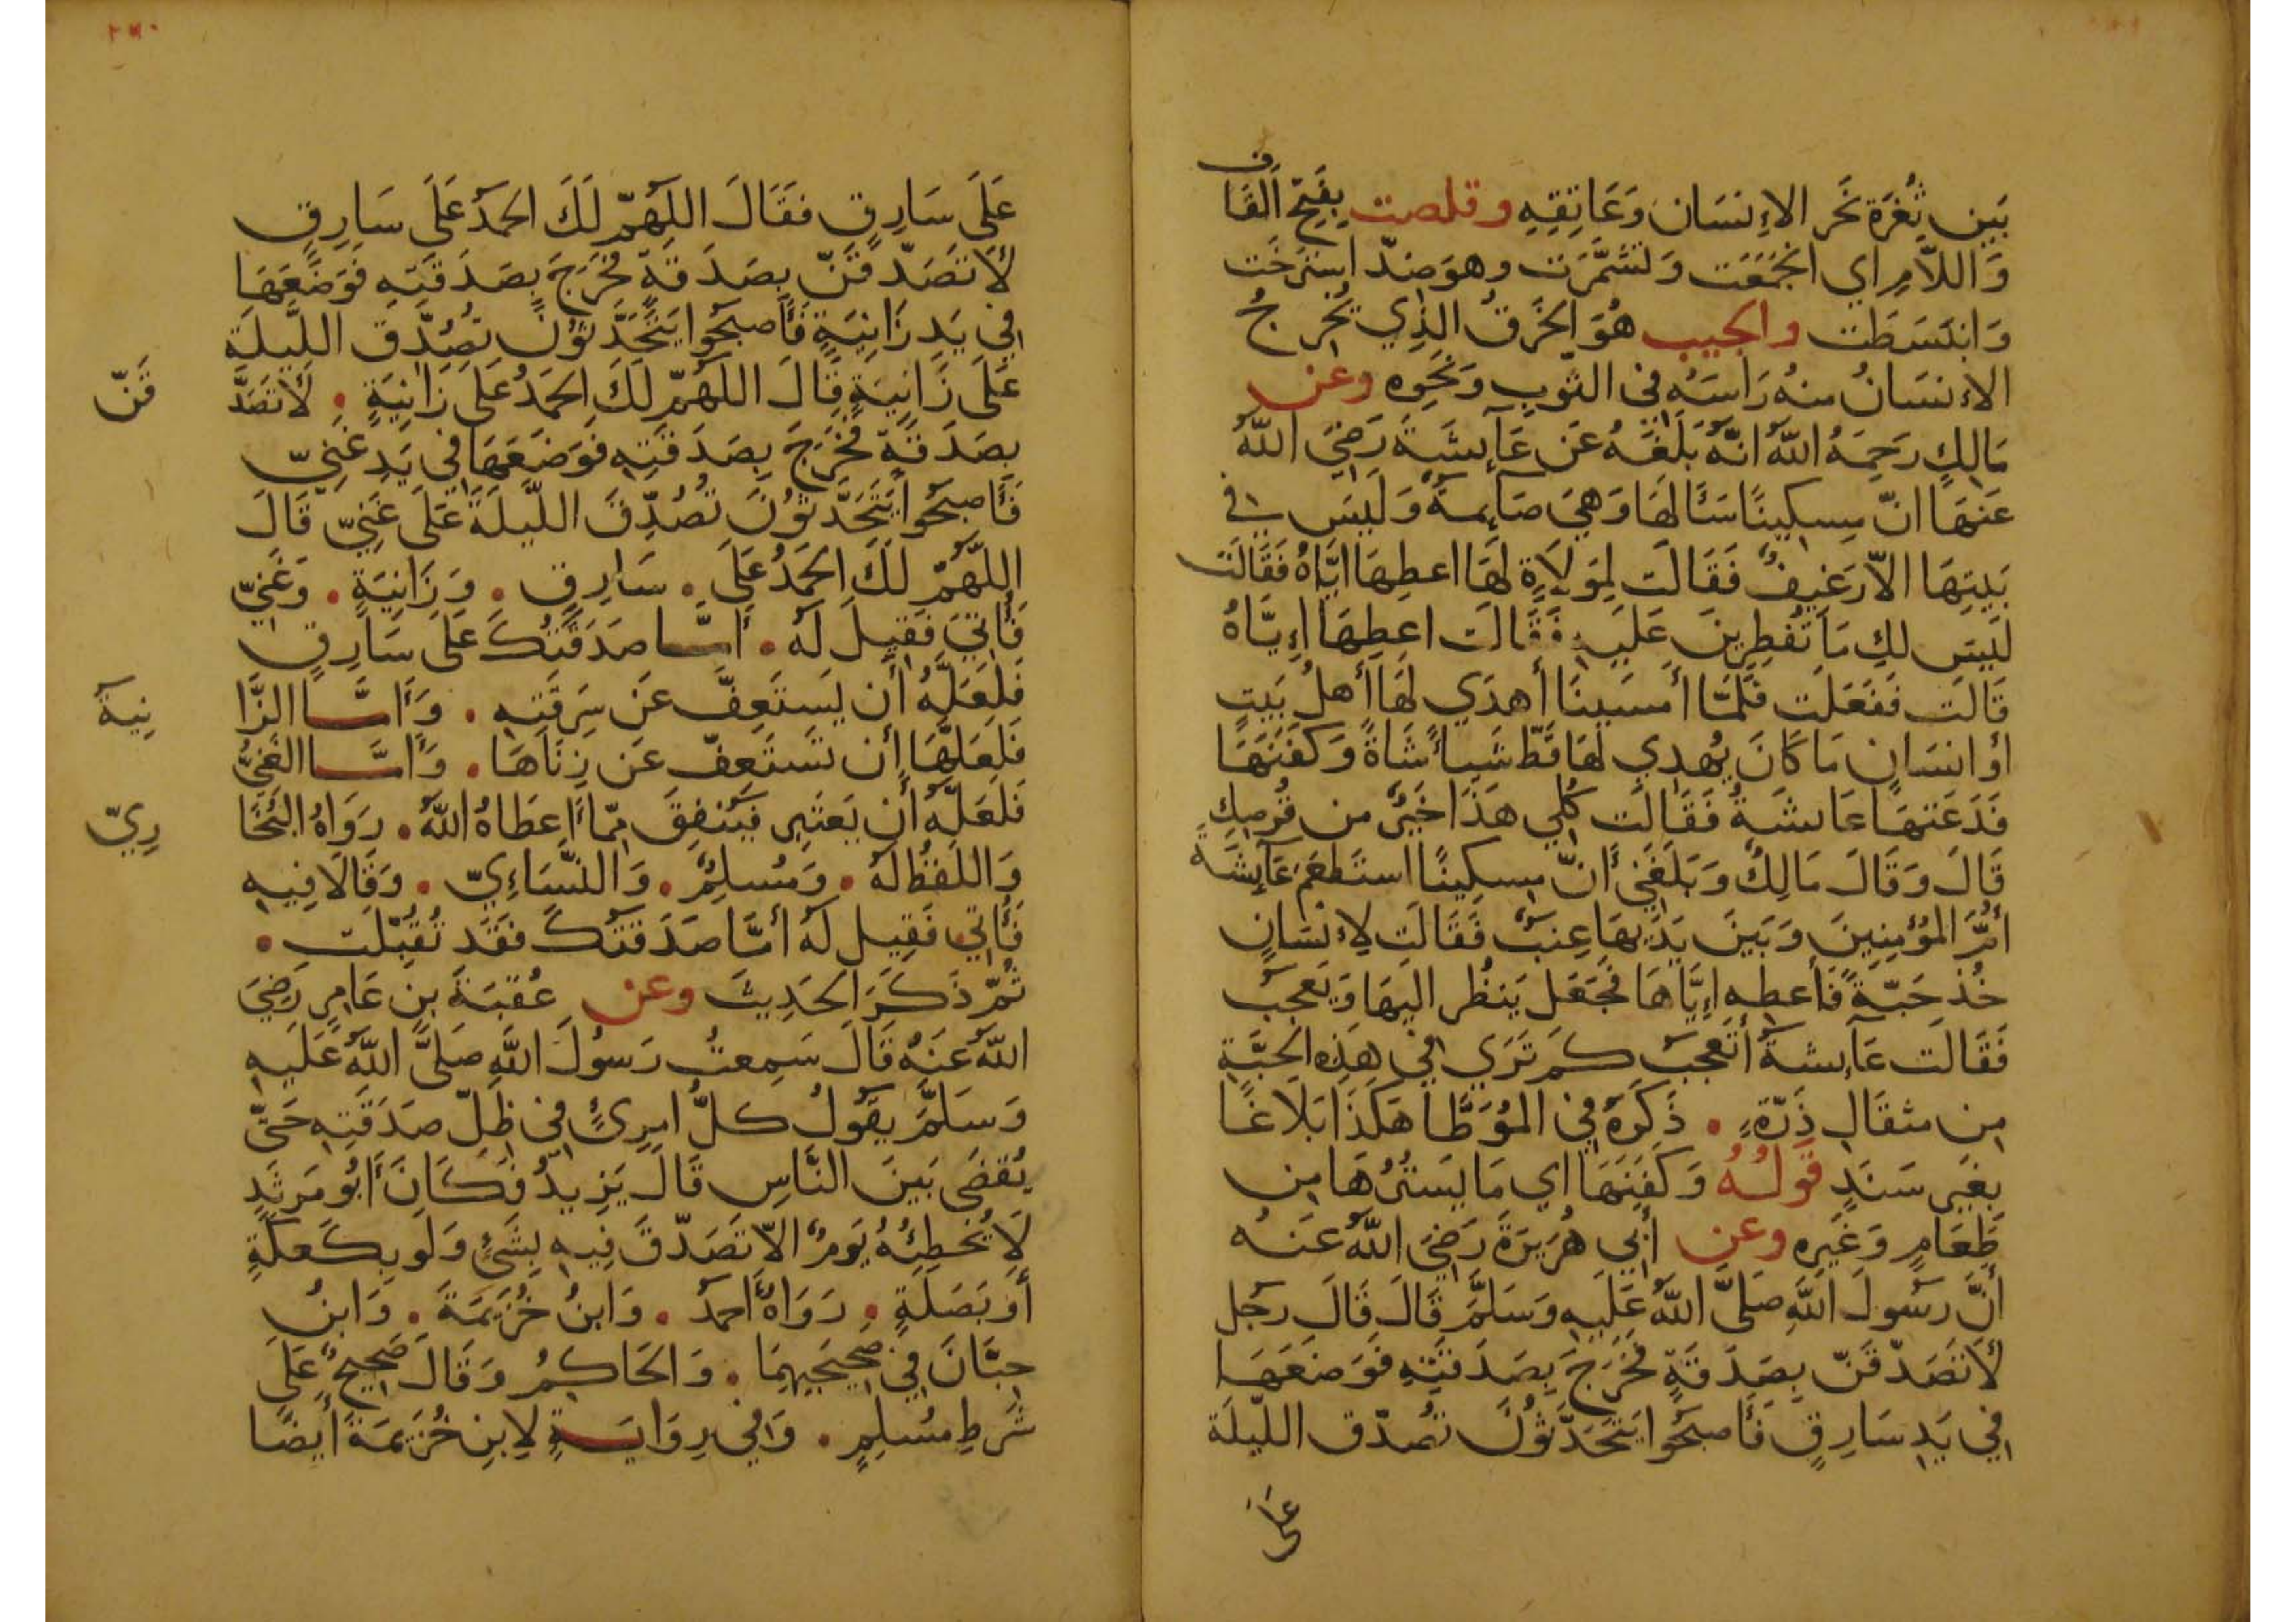 بَين ثُغرَة نَحر الاِنسَان وَعَاتِقِهِ وقلصت بِفَتحِ القَاف
وَاللاَّمِ اي انجَمَعَت وَتشَمَّرَت وهوَ ضدّ استَرخَت
وَانبَسَطَت والجيب هُوَ الخَرقُ الذِي يُخرجُ
الاِنسَانُ منهُ رَاسَهُ في الثّوبِ وَنَحوِه وعن
مَالِكٍ رَحِمَهُ اللّهُ انّهُ بَلَغَهُ عَن عَآئِشَةَ رَضِيَ اللّهُ
عَنهَا انّ مِسكِينًا سَئَالَهَا وَهِيَ صَآئِمةٌ وَلَيسَ في
بَيتِهَا الاّ رَغِيفٌ فَقَالَت لِمَولَاةٍ لَهَا اعطِهَا ايَّاهُ فَقَالَت
لَيسَ لكِ مَا تُفطِرِينَ عَلَيهِ فَقَالَت اعطِهَا اِيَّاهُ
قَالَت فَفَعَلَت فَلَمَّا أمسَينَا أهدَي لَهَا أهلُ بَيتٍ
أو انسَانٍ مَا كَانَ يُهدِي لَهَا قَطّ شَيأً شَاةً وَكَفَنَهَا
فَدَعَتهَا عَايشَةُ فَقَالَت كُلِي هَذَا خَيرٌ من قُرصِكِ
قَالَ وَقَالَ مَالِكٌ وَبَلَغَنِي أنّ مِسكِينًا استَطعَمَ عَآئِشَةَ
أمَّ المُؤمِنِينَ وَبَينَ يَدَيهَا عِنَبٌ فَقَالَت لِاِنسَانٍ
خُذ حَبّةً فَأعطِهِ اِيَّاهَا فَجَعَل يَنظُر اليهَا وَيَعجَبُ
فَقَالَت عَآئِشةُ أتَعجَبُ كَم تَرَي في هَذِهِ الحَبَّةِ
مِن مثقَالِ ذَرّةٍ . ذَكَرَهُ في المُوَطَّا هَكَذَا بَلَاغًا
بِغَيرِ سَنَدٍ قَولُهُ وَكَفَنَهَا اي مَا يَستُرُهَا مِن
طَعَامٍ وَغَيرِه وعن أبِي هُرَيرَةَ رَضِيَ اللّهُ عَنهُ
أنَّ رَسُولَ اللّهِ صَلَّى اللّهُ عَلَيهِ وَسَلَّمَ قَالَ قَالَ رَجُل
لأتَصَدّقَنّ بِصَدَقَةٍ فَخَرَجَ بِصَدَقَتِهِ فَوَضَعَهَا
في يَدِ سَارِقٍ فَأصبَحُوا يَتَحَدَّثُونَ تُصُدّق اللّيلَة
عَلَى
عَلَى سَارِقٍ فَقَالَ اللهمّ لَكَ الحمدُ عَلَى سَارِقٍ
لأتَصَدّقَنّ بِصَدَقَةٍ فَخَرَجَ بِصَدَقَتِهِ فَوَضَعَهَا
في يَدِ زَانِيَةٍ فَأصبَحُوا يَتَحَدَّثُونَ تُصُدِّقَ اللَّيلَةَ
عَلَى زَانِيَةٍ قَالَ اللّهُمّ لَكَ الحَمدُ عَلَى زَانِيَةٍ . لَأتَصَدَّ
قَنّ
بِصَدَقَةٍ فَخَرَجَ بِصَدَقَتِهِ فَوَضَعَهَا في يَدِ غَنِيّ
فَأصبَحُوا يَتَحَدَّثُونَ تُصُدِّقَ اللّيلَةَ عَلَى غَنِيّ قَالَ
اللَّهُمّ لَكَ الحَمدُ عَلَى . سَارِقٍ . وَزَانِيَةٍ . وَغَنِيّ
فَأُتِيَ فَقِيلَ لَه . أَمَّا صَدَقَتُكَ عَلَى سَارِقٍ
فَلَعَلَّهُ أن يَستَعِفَّ عَن سَرِقَتِهِ . وَأمَّا الزَّا
نِيةُ
فَلَعَلَّهَا أن تَستَعِفّ عَن زِنَاهَا . وَأمَّا الغَنِيُّ
فَلَعَلّهُ أن يَعتَبِر فَيُنفِقَ مِمّا أعطَاهُ اللّهُ . رَوَاهُ البُخَا
رِيّ
وَاللّفظُ لَهُ . وَمُسلِمٌ . وَالنّسَاءِيّ . وَقَالَا فِيهِ
فَأُتِي فَقِيل لَهُ أمَّا صَدَقَتُكَ فَقَد تُقُبِّلَت .
ثُمّ ذَكَرَ الحَدِيثَ وعن عُقبَةَ بنِ عَامِرٍ رَضِيَ
اللّهُ عَنهُ قَالَ سَمِعتُ رَسُولَ اللّهِ صَلَّى اللّهُ عَلَيهِ
وَسَلَّمَ يقُولُ كلُّ امرِئٍ في ظِلّ صَدَقَتِهِ حَتّى
يُقضَى بَينَ النَّاسِ قَالَ يَزِيدُ فَكَانَ أبُو مَرثَدٍ
لَا يُخطِئُهُ يَومٌ الاّ تَصَدّقَ فِيهِ بِشَيءٍ وَلَو بِكَعكَةٍ
أو بَصَلَةٍ . رَوَاهُ أحمدُ . وَابنُ خُزَيمَةَ . وَابنُ
حِبَّانَ في صَحِيحَيهِمَا . وَالحَاكِمُ وَقَالَ صَحِيحٌ عَلَى
شَرطِ مُسلِمٍ . وَفي رِوَايَةٍ لِابنِ خُزَيمَةَ أيضًا